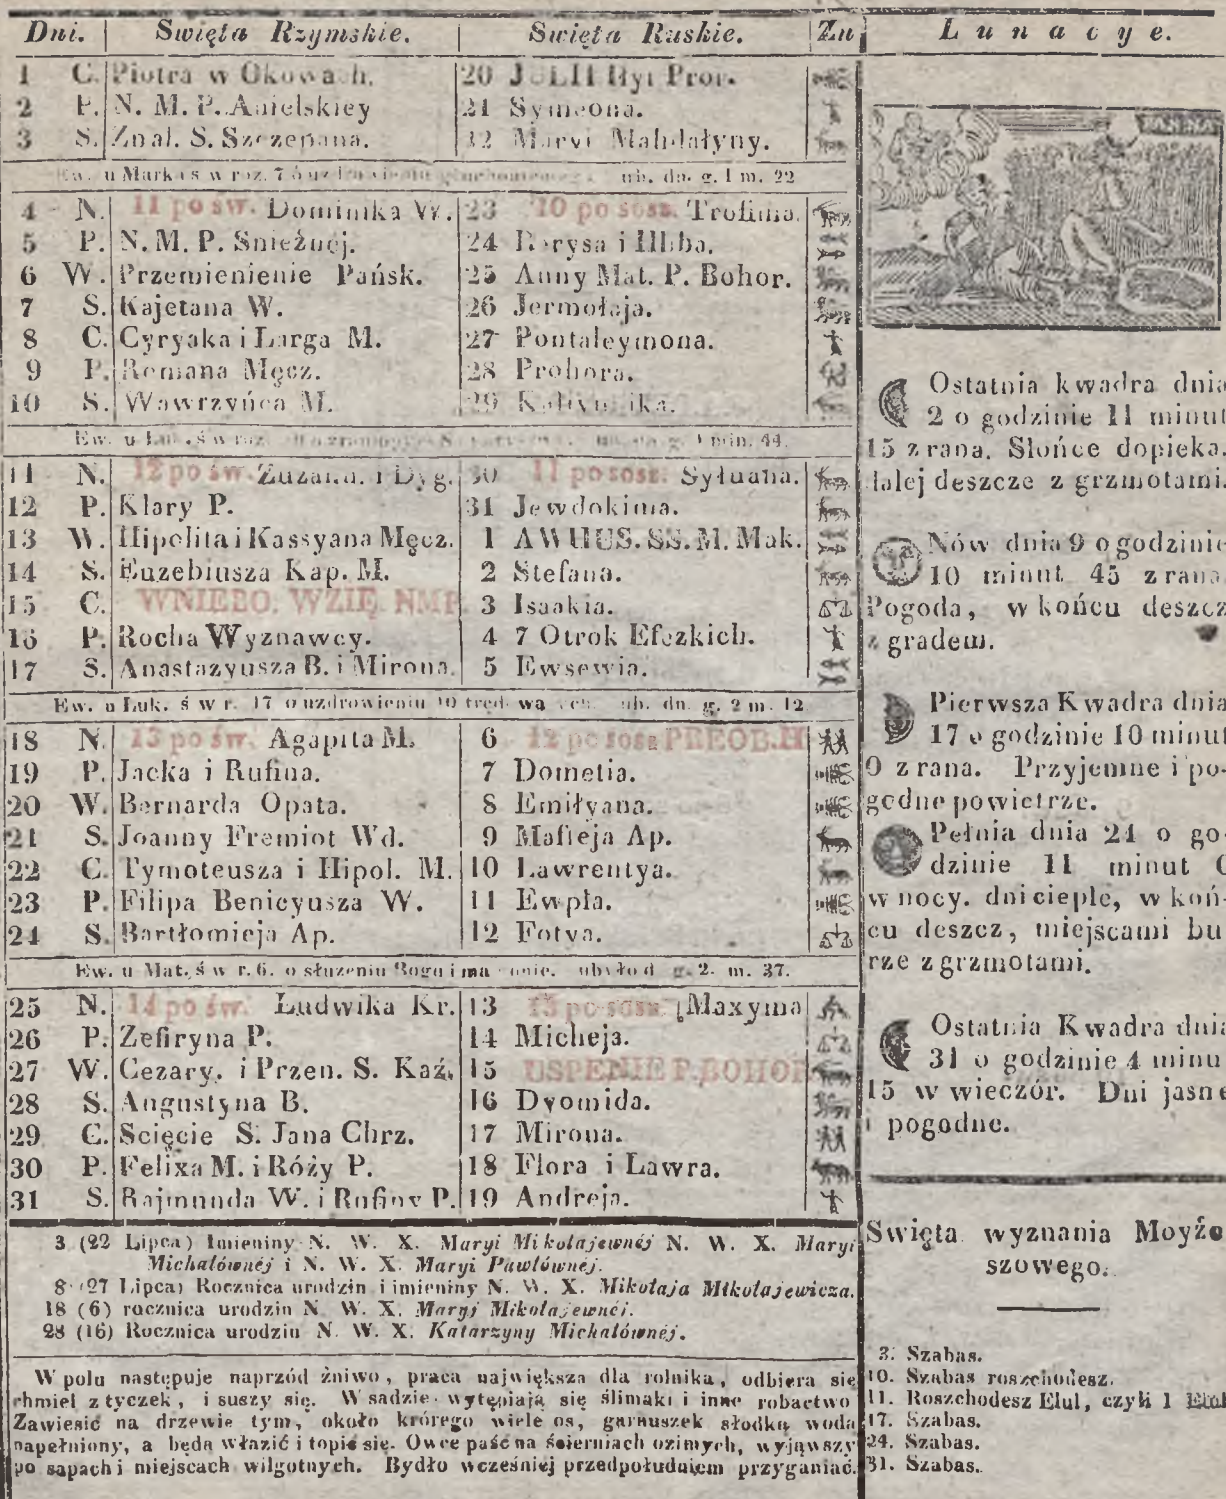 Dni. Swięta Rzymskie. Swięta Ruskie. Zn
1 C. Piotra w Okowach. 20 JULII Ilyi Pror.
2 P. N. M. P. Anielskiey 21 Symeona.
3 S. Znal. S. Szczepana. 22 Maryi Mahdałyny.
Ew. u Marka ś w roz. 7 o ub. dn. g. 1 m. 22
4 N. 11 po św. Dominika W. 23 10 po sosz. Trofima.
5 P. N. M. P. Snieżnej. 24 Borysa i Hliba.
6 W. Przemienienie Pańsk. 25 Anny Mat. P. Bohor.
7 S. Kajetana W. 26 Jermołaja.
8 C. Cyryaka i Larga M. 27 Pontaleymona.
9 P. Romana Męcz. 28 Prohora.
10 S. Wawrzyńca M. 29
Ew. u Łuk. ś w roz. g. 1 min. 44.
11 N. 12 po św. Zuzann. i Dyg. 30 11 po sosz. Syłuana.
12 P. Klary P. 31 Jewdokima.
13 W. Hipolita i Kassyana Męcz. 1 AWHUS. SS. M. Mak.
14 S. Euzebiusza Kap. M. 2 Stefana.
15 C. WNIEBO. WZIĘ. NMP 3 Isaakia.
16 P. Rocha Wyznawcy. 4 7 Otrok Efezkich.
17 S. Anastazyusza B. i Mirona. 5 Ewsewia.
Ew. u Łuk. ś w r. 17 o uzdrowieniu 10 tręd. ub. dn. g. 2 m. 12
18 N. 13 po św. Agapita M. 6 12 po sosz PREOB. H
19 P. Jacka i Rufina. 7 Dometia.
20 W. Bernarda Opata. 8 Emiłyana.
21 S. Joanny Fremiot Wd. 9 Mafteja Ap.
22 C. Tymoteusza i Hipol. M. 10 Lawrentya.
23 P. Filipa Benicyusza W. 11 Ewpła.
24 S. Bartłomieja Ap. 12 Fotya.
Ew. u Mat. ś w r. 6. o służeniu Bogu i g. 2. m. 37.
25 N. 14 po św. Ludwika Kr. 13 13 po sosz. Maxyma
26 P. Zefiryna P. 14 Micheja.
27 W. Cezary. i Przen. S. Kaź. 15 USPENIE P. BOHOR
28 S. Augustyna B. 16 Dyomida.
29 C. Scięcie S. Jana Chrz. 17 Mirona.
30 P. Felixa M. i Róży P. 18 Flora i Lawra.
31 S. Rajmunda W. i Rufiny P. 19 Andreja.
3 (22 Lipca) Imieniny N. W. X. Maryi Mikołajewnéj N. W. X. Maryi
Michałównéj i N. W. X. Maryi Pawłównéj.
8 (27 Lipca) Rocznica urodzin i imieniny N. W. X. Mikołaja Mikołajewicza.
18 (6) rocznica urodzin N. W. X. Maryi Mikołajewnéj.
28 (16) Rocznica urodzin N. W. X. Katarzyny Michałównéj.
W polu następuje naprzód żniwo, praca największa dla rolnika, odbiera się
chmiel z tyczek, i suszy się. W sadzie wytępiają się ślimaki i inne robactwo
Zawiesić na drzewie tym, około krórego wiele os, garnuszek słodką wodą
napełniony, a będą włazić i topić się. Owce paść na ścierniach ozimych, wyjąwszy
po sapach i miejscach wilgotnych. Bydło wcześniej przedpołudniem przyganiać.
Lunacye.
PANNA
Ostatnia kwadra dnia
2 o godzinie 11 minut
15 z rana. Słońce dopieka.
dalej deszcze z grzmotami.
Nów dnia 9 o godzinie
10 minut 45 z rana
Pogoda, w końcu deszcz
z gradem.
Pierwsza Kwadra dnia
17 o godzinie 10 minut
0 z rana. Przyjemne i po-
godne powietrze.
Pełnia dnia 24 o go-
dzinie 11 minut 0
w nocy. dni ciepłe, w koń-
cu deszcz, miejscami bu
rze z grzmotami.
Ostatnia Kwadra dnia
31 o godzinie 4 minu
15 w wieczór. Dni jasne
i pogodne.
Swięta wyznania Moyże
szowego.
3. Szabas.
10. Szabas roszchodesz.
11. Roszchodesz Elul, czyli 1 Elul
17. Szabas.
24. Szabas.
31. Szabas.